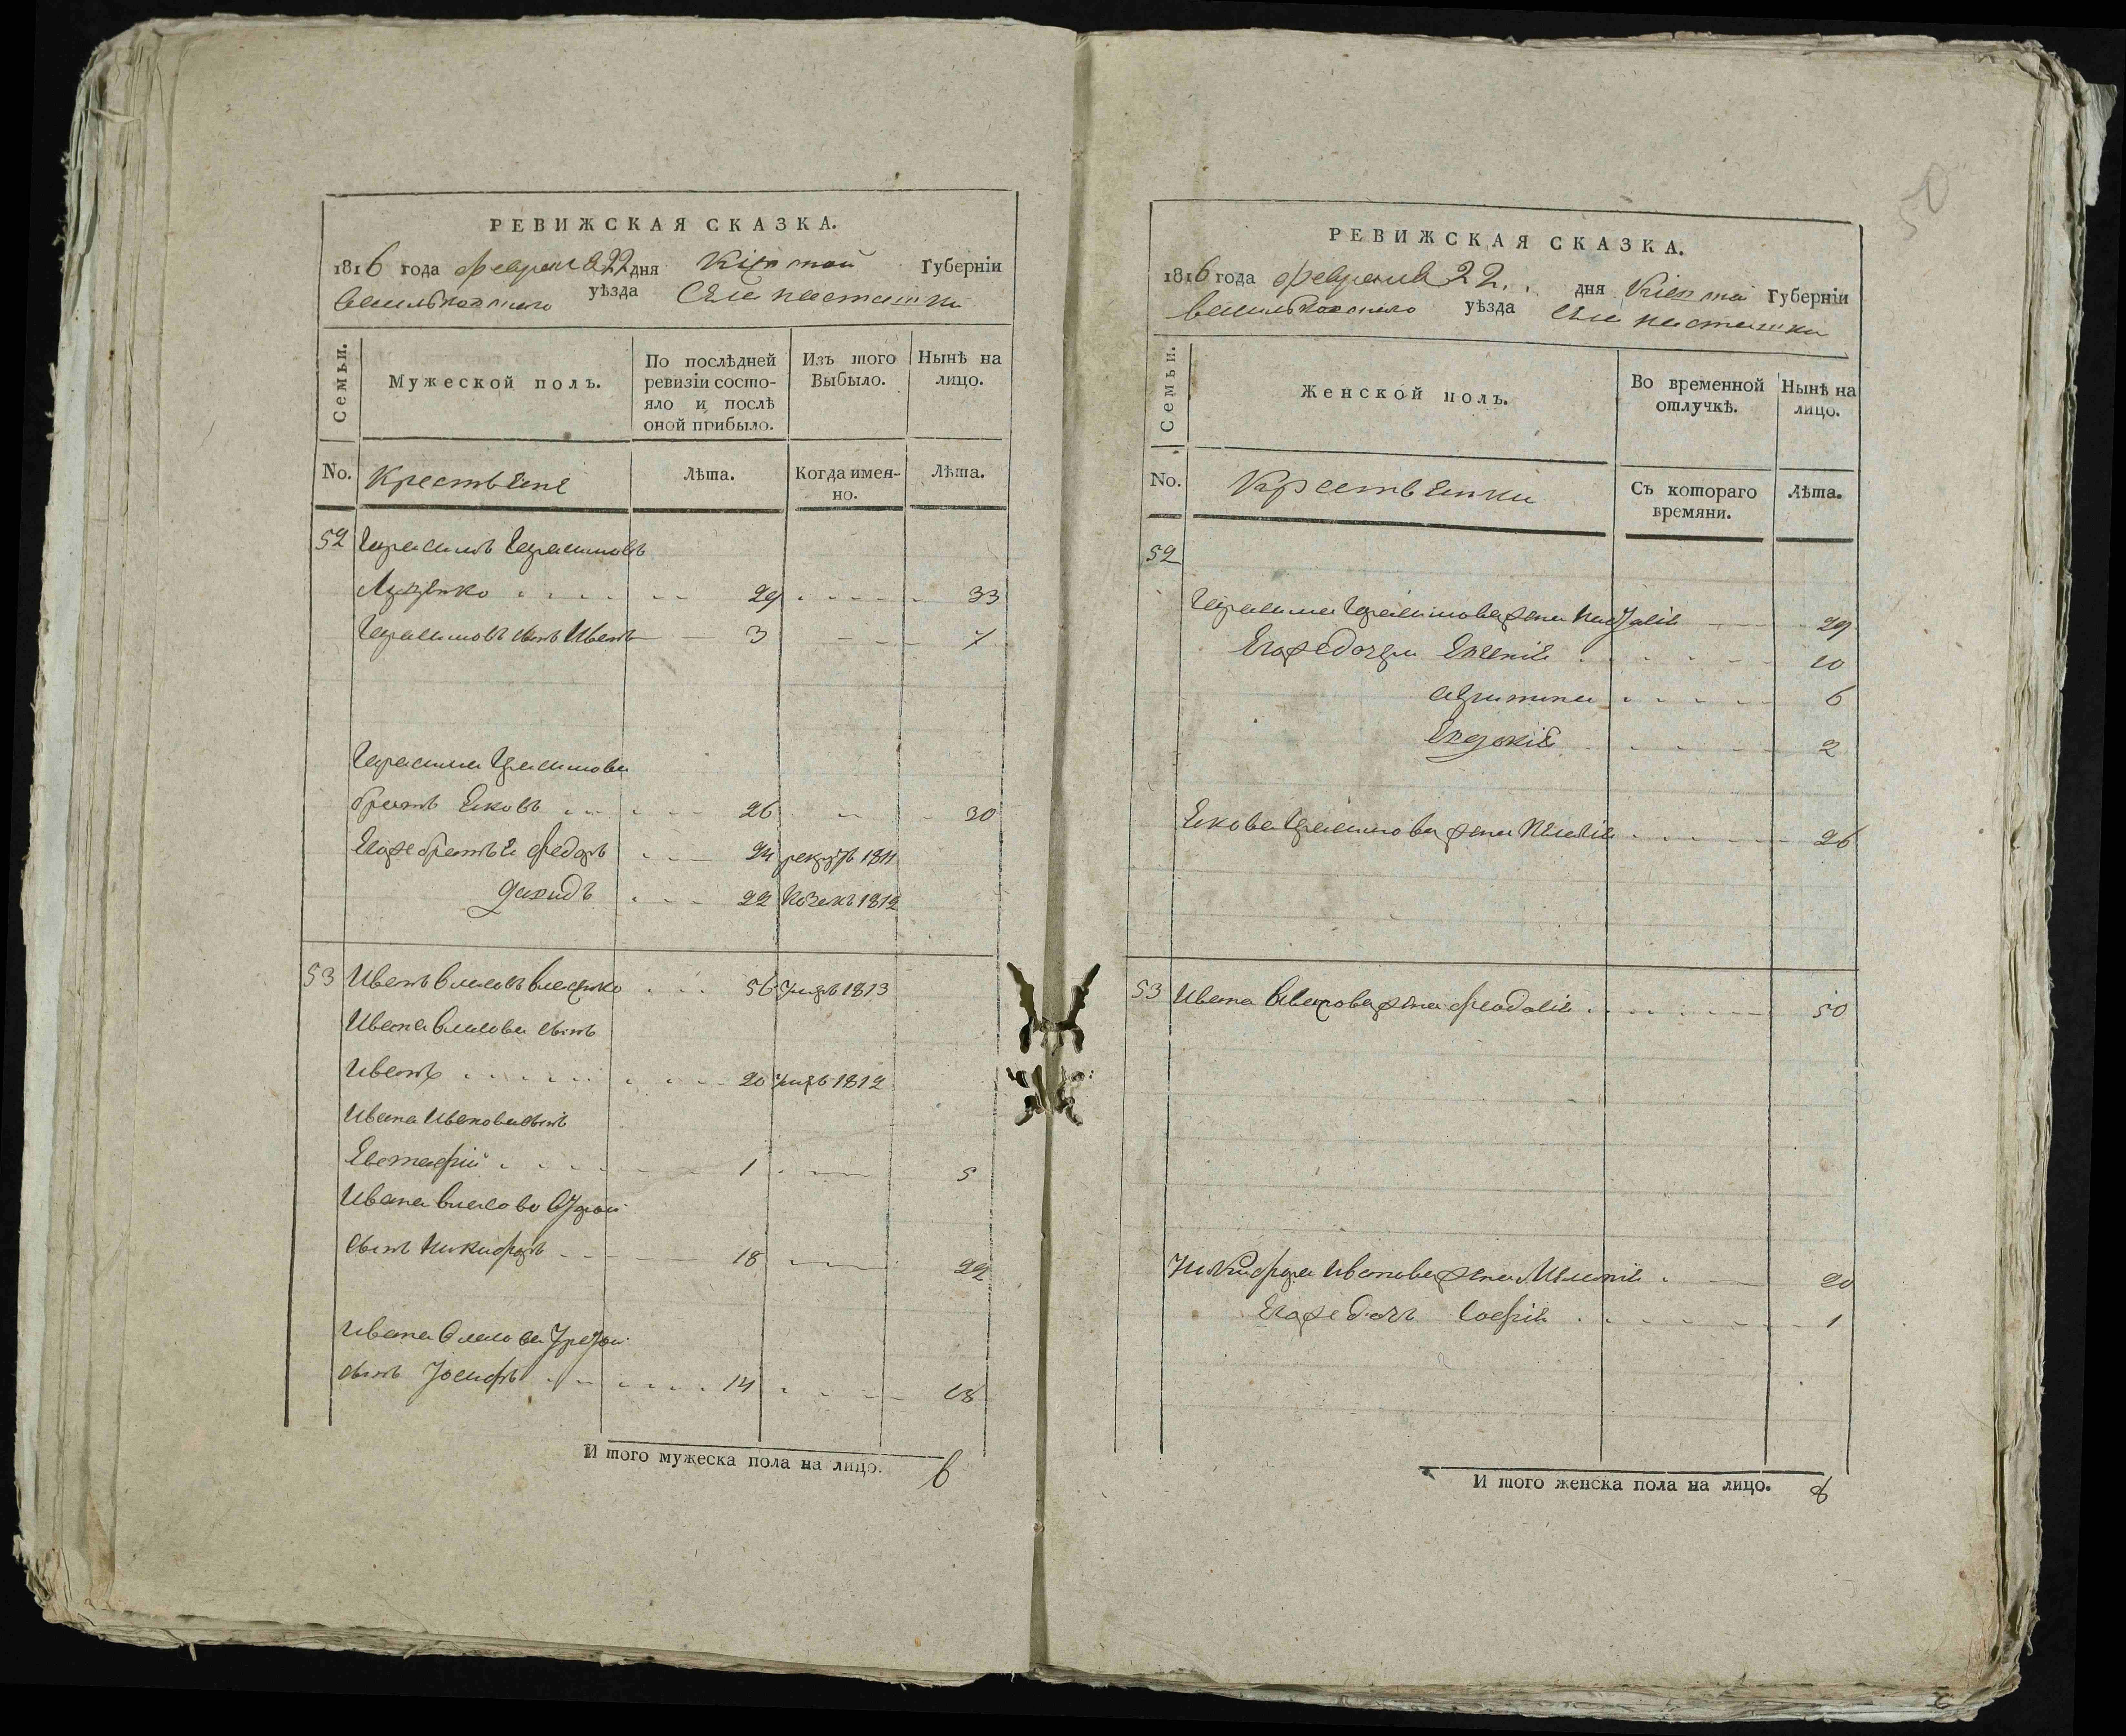 РЕВИЖСКАЯ СКАЗКА.
1816 года февраля 22 дня Кіевской Губерніи
Васильковского уѣзда Села
Семьи.
Мужеской полъ.
По послѣдней ревизіи состо-
яло и послѣ
оной прибыло.
Изъ того Выбыло.
Нынѣ на лицо.
No. Крестьяне Лѣта. Когда имен-
но. Лѣта.
52 Герасимъ Герасимовъ
29 33
Герасимовъ сынъ Иванъ 3 7
Герасима Герасимова
братъ Яковъ 26 30
Егоже братья Федоръ 24 рекрутъ 1811
Давидъ 22 козакъ 1812
53 Иванъ Власовъ 56 умеръ 1813
Ивана Власова сынъ
Иванъ 20 умеръ 1812
Ивана Иванова сынъ
Евстафій 1 5
Ивана Власова
сынъ Никифоръ 18 22
Ивана Власова
сынъ Іосифъ 14 18
И того мужеска пола на лицо. 6
50
РЕВИЖСКАЯ СКАЗКА.
1816 года февраля 22 дня Кіевской Губерніи
Васильковского уѣзда Села
Семьи.
Женской полъ.
Во временной
отлучкѣ.
Нынѣ на
лицо.
No. Крестьянки Съ котораго
времяни. Лѣта.
52
Герасима Герасимова жена Наталія 29
Егоже дочери Евгенія 10
6
Евдокія 2
Якова Герасимова жена 26
53 Ивана жена Феодосія 50
Никифора Иванова жена 20
Егоже дочь Софія 1
И того женска пола на лицо. 8